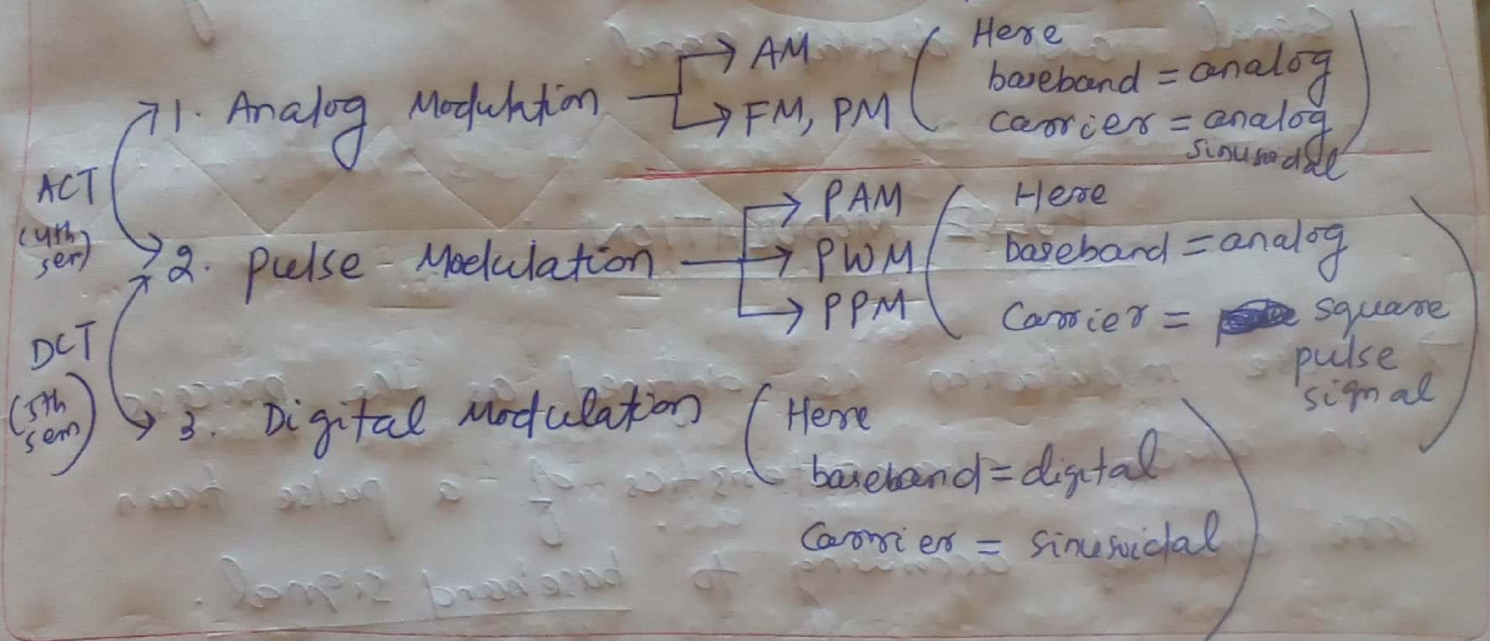 1. Analog Modulation → AM
→ FM, PM
( Here
baseband = analog
carrier = analog
sinusoidal )
ACT
(4th
sem)
2. Pulse Modulation → PAM
→ PWM
→ PPM
( Here
baseband = analog
Carrier = square
pulse
signal )
DCT
(5th
sem)
3. Digital Modulation ( Here
baseband = digital
Carrier = sinusoidal )